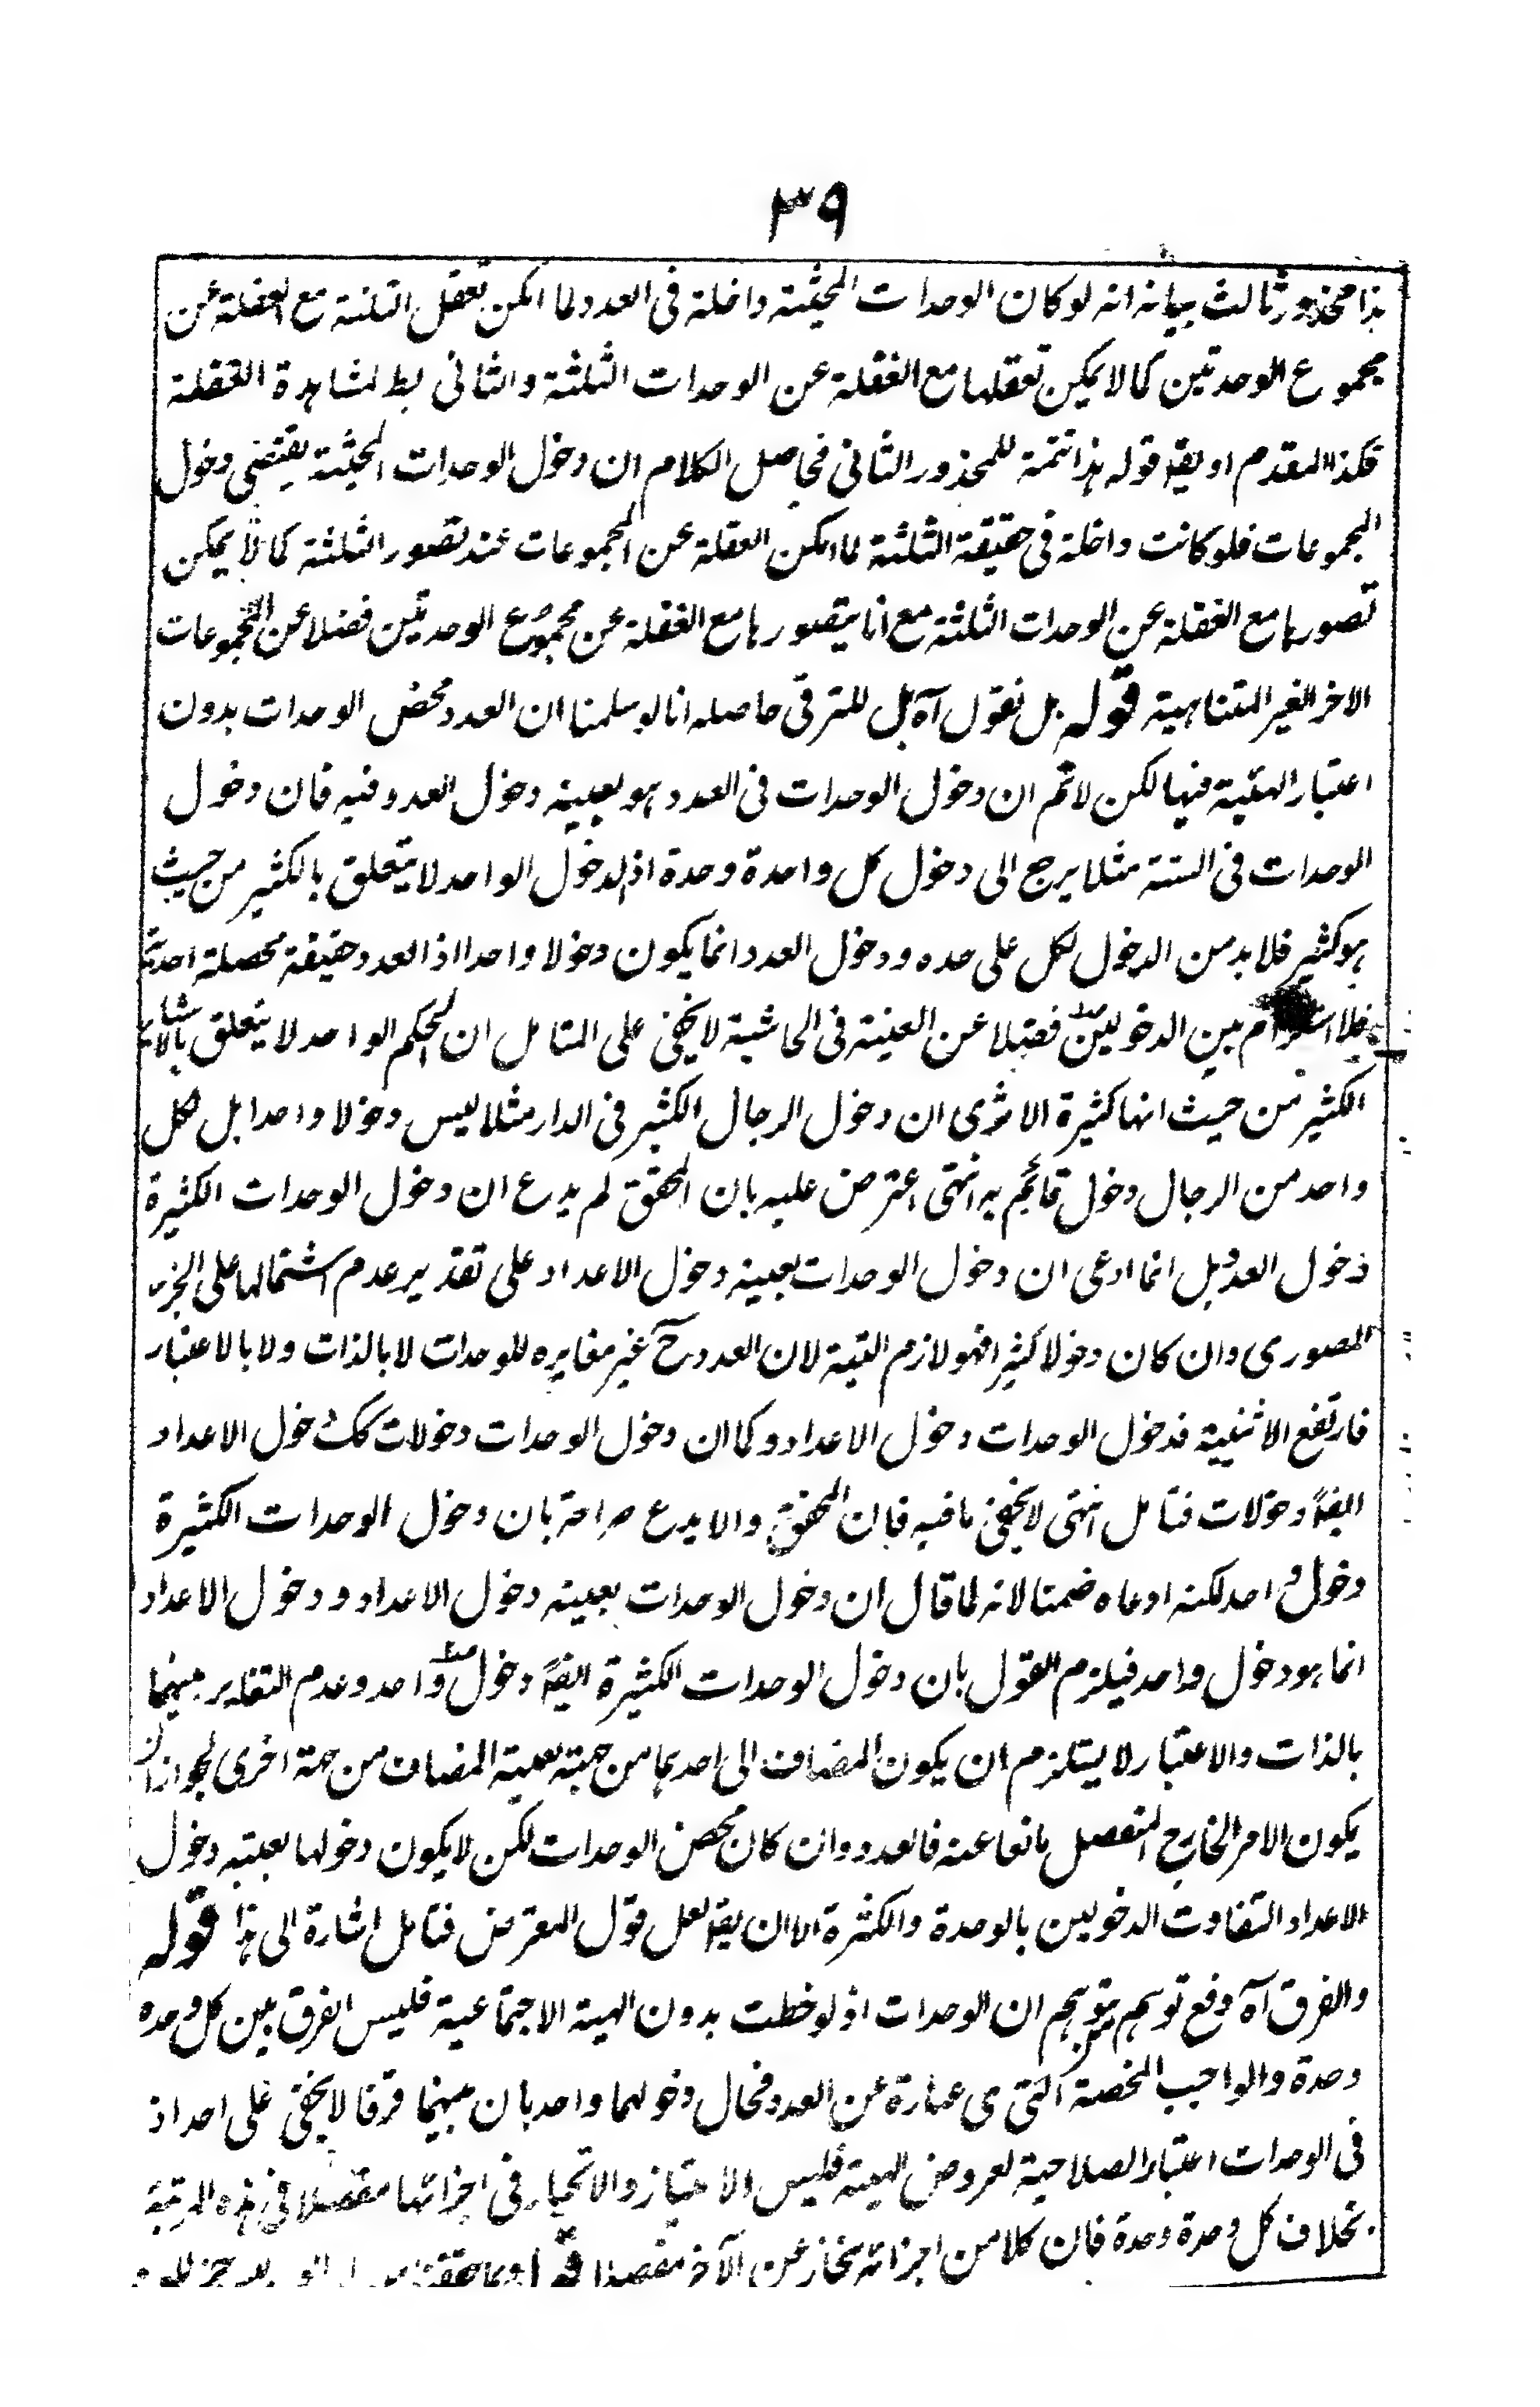 ٣٩
هذا محذور ثالث بيانه انه لو كان الوحدات المحيثة داخلة فى العدد لما امكن تعقل الثلثة مع الغفلة عن
مجموع الوحدتين كما لا يمكن تعقلها مع الغفلة عن الوحدات الثلثة والثانى بط لمشاهدة الغفلة
فكذا المقدم او يقه قوله هذا تتمة للمحذور الثانى فحاصل الكلام ان دخول الوحدات المحيثة يقتضى دخول
المجموعات فلو كانت داخلة فى حقيقة الثلثة لما امكن الغفلة عن المجموعات عند تصور الثلثة كما لا يمكن
تصورها مع الغفلة عن الوحدات الثلثة مع انا نتصورها مع الغفلة عن مجموع الوحدتين فضلا عن المجموعات
الاخر الغير المتناهية قوله بل نقول آه بل للترقى حاصله انا لو سلمنا ان العدد محض الوحدات بدون
اعتبار الهيئية فيها لكن لا نم ان دخول الوحدات فى العدد هو بعينه دخول العدد فيه فان دخول
الوحدات فى الستة مثلا يرجع الى دخول كل واحدة وحدة اذ الدخول الواحد لا يتعلق بالكثير من حيث
هو كثير فلا بد من الدخول لكل على حده ودخول العدد انما يكون دخولا واحدا اذ العدد حقيقة محصلة احدية
فلا استلزام بين الدخولين فضلا عن العينة فى الحاشية لا يخفى على المتامل ان الحكم الواحد لا يتعلق بالاشياء
الكثير من حيث انها كثيرة الا ترى ان دخول الرجال الكثير فى الدار مثلا ليس دخولا واحدا بل لكل
واحد من الرجال دخول قائم به انتهى اعترض عليه بان المحقق لم يدع ان دخول الوحدات الكثيرة
دخول العدد بل انما ادعى ان دخول الوحدات بعينه دخول الاعداد على تقدير عدم اشتمالها على الجزء
الصورى وان كان دخولا كثيرا فهو لازم البتة لان العدد ح غير مغايره للوحدات لا بالذات ولا بالاعتبار
فارتفع الاثنينية فدخول الوحدات دخول الاعداد وكما ان دخول الوحدات دخولات كك دخول الاعداد
ايضا دخولات فتامل انتهى لا يخفى ما فيه فان المحقق والا يدع صراحة بان دخول الوحدات الكثيرة
دخول واحد لكنه ادعاه ضمنا لانه لما قال ان دخول الوحدات بعينه دخول الاعداد ودخول الاعداد
انما هو دخول واحد فيلزم القول بان دخول الوحدات الكثيرة ايضا دخول واحد وعدم التغاير بينهما
بالذات والاعتبار لا يستلزم ان يكون المضاف الى احدهما من جهة بعينه المضاف من جهة اخرى لجواز ان
يكون الامر الخارج المنفصل مانعا عنه فالعدد وان كان محض الوحدات لكن لا يكون دخولها بعينه دخول
الاعداد التفاوت الدخولين بالوحدة والكثرة الا ان يقه لعل قول المعترض فتامل اشارة الى هذا قوله
والفرق آه دفع توهم متوهم ان الوحدات اذ لوحظت بدون الهيئة الاجتماعية فليس الفرق بين كل وحدة
وحدة والواجب المخصة التى هى عبارة عن العدد فحال دخولهما واحد بان بينهما فرقا لا يخفى على احد اذ
فى الوحدات اعتبار الصلاحية لعروض الهيئة فليس الامتياز والانحياز فى اجزائها مفصلا فى هذه المرتبة
بخلاف كل وحدة وحدة فان كلا من اجزائه منحاز عن الآخر مفصلا قوله